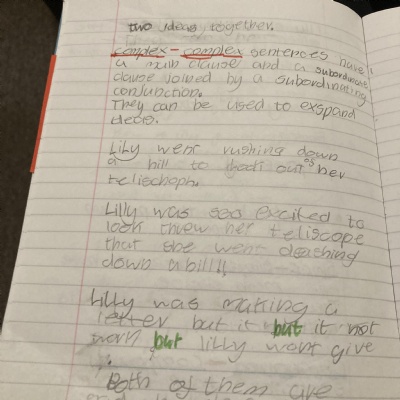 two ideas together.
complex - complex sentences have
a main clause and a subordinate
clause joined by a subordinating
conjunction.
They can be used to exspand
ideas.
Lilly went rushing down
a hill to find out as her
teliscoph.
Lilly was soo excited to
look threw her teliscope
that she went deashing
down a bill!!
Lilly was making a
letter but it but it not
worn but lilly wont give
Both of them are